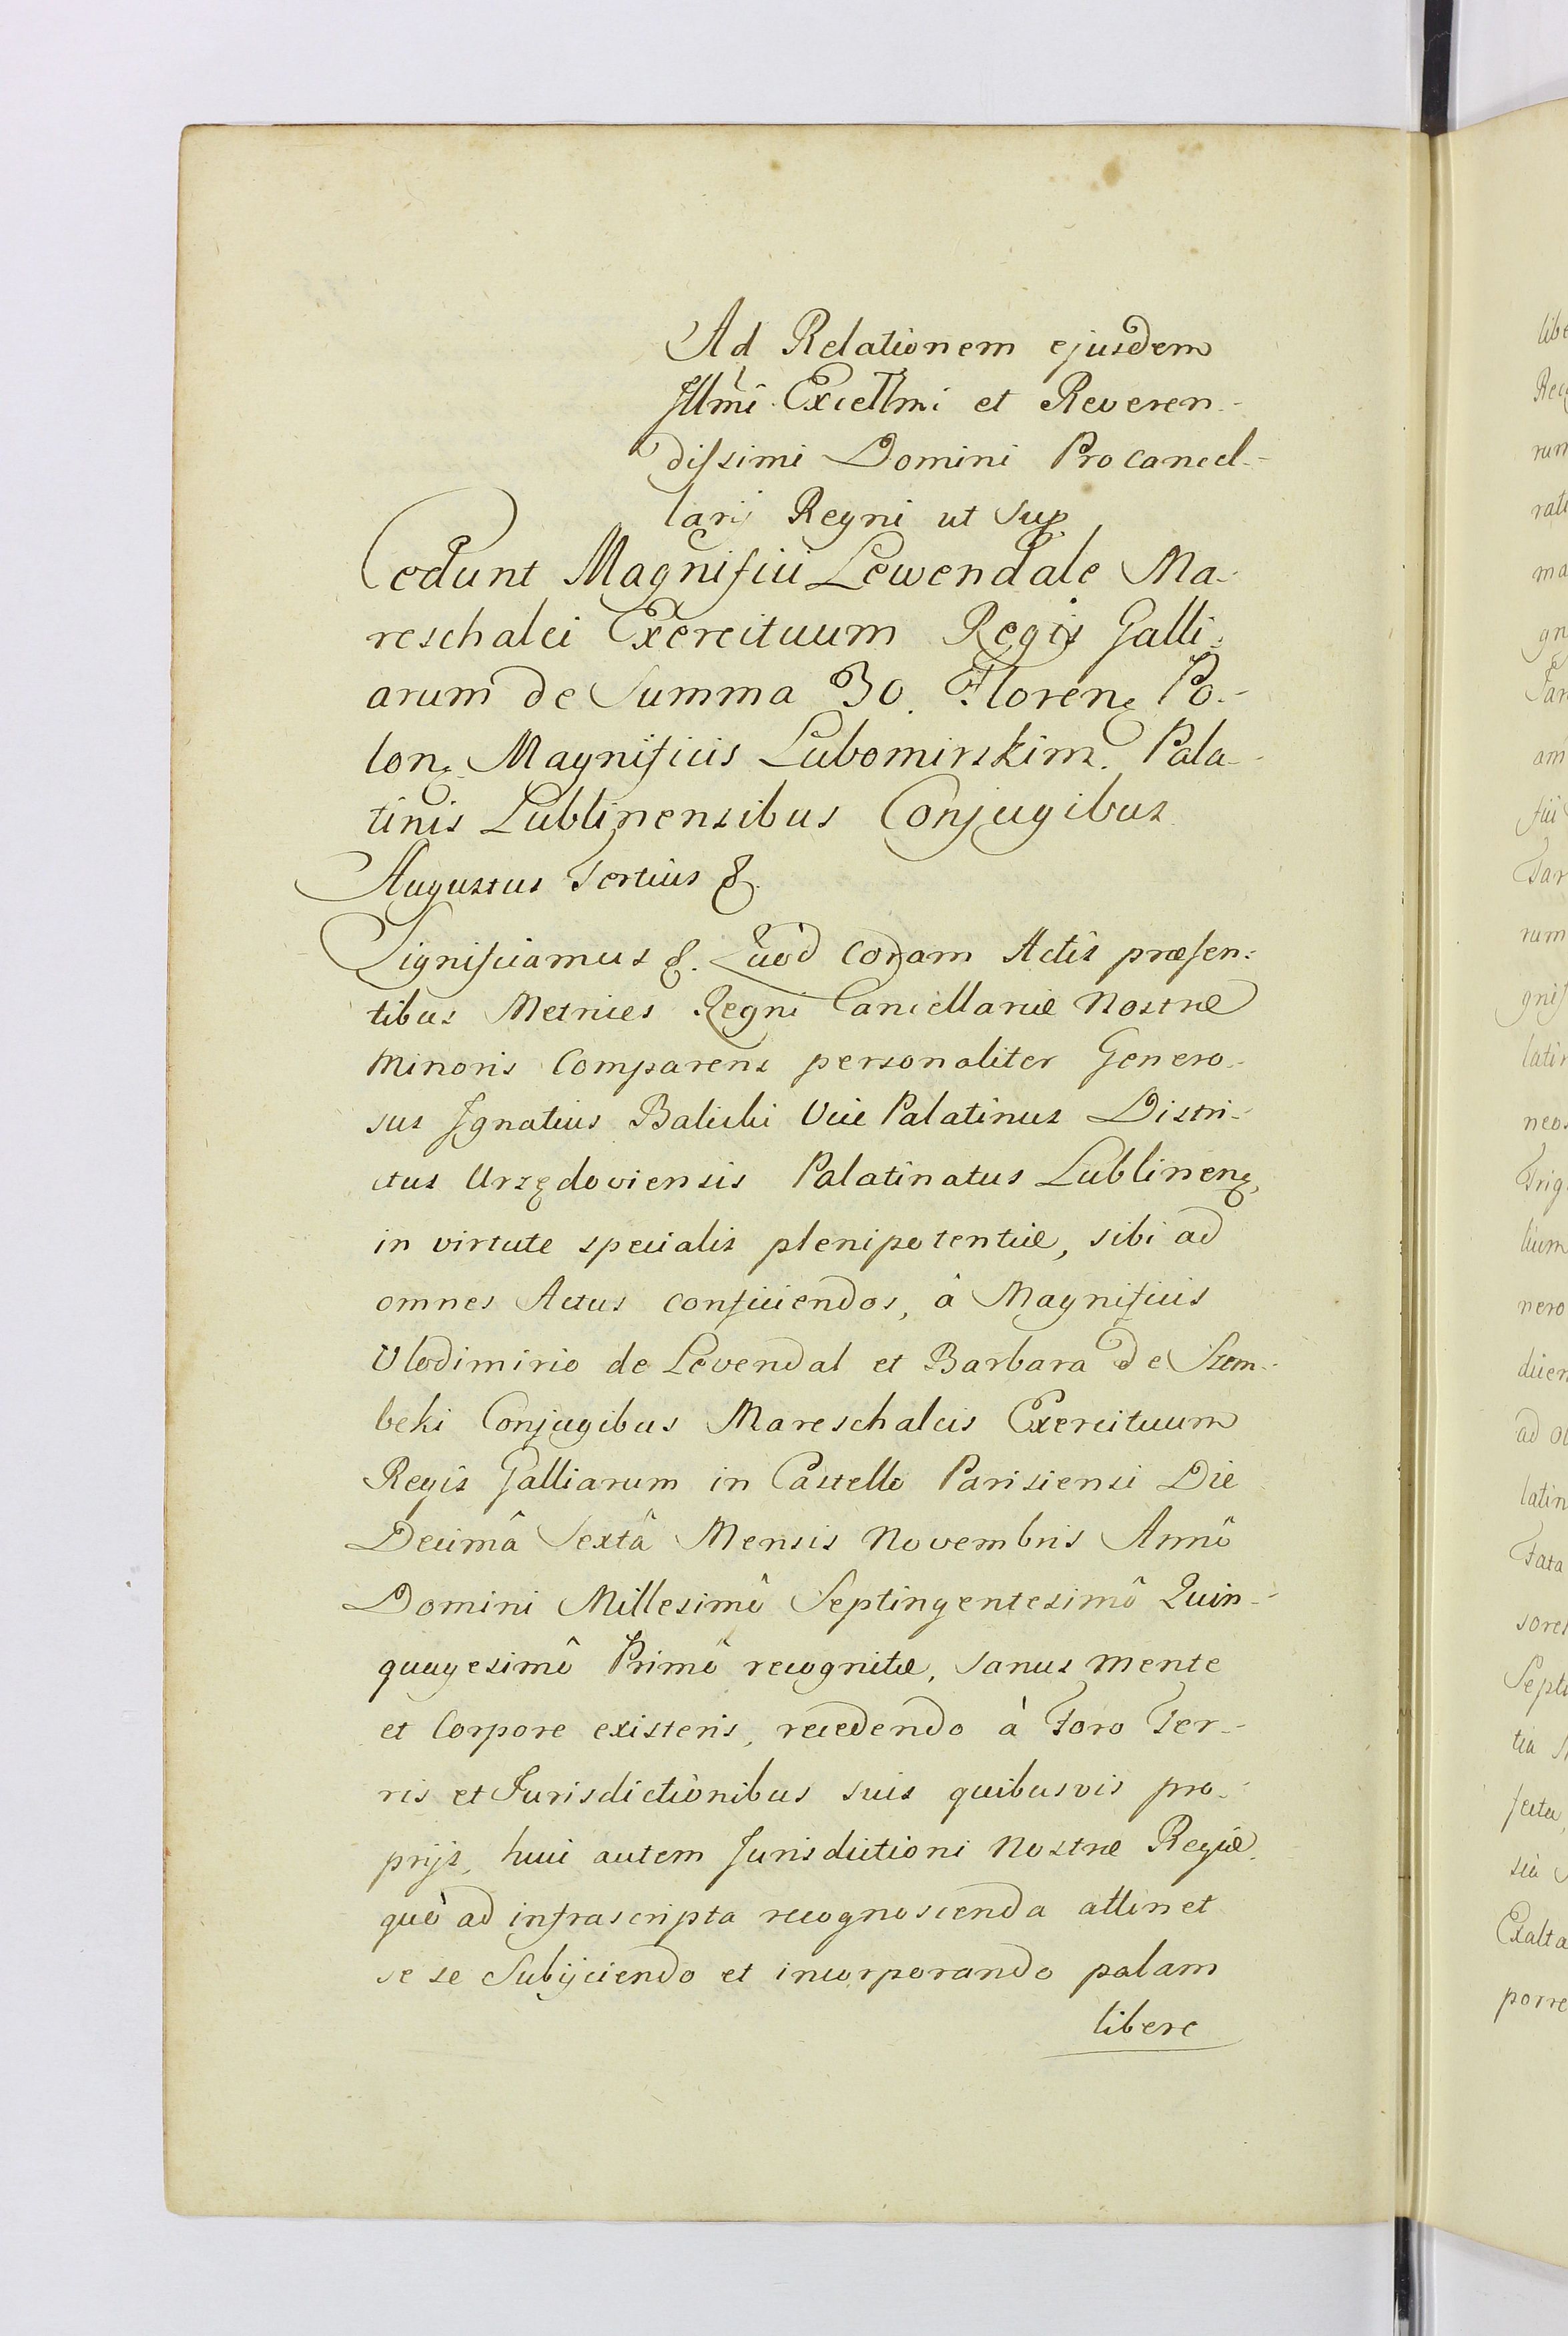 Ad Relationem ejusdem
Jllmi Excellmi et Reveren-
dissimi Domini Procancel-
larij Regni ut Sup
Cedunt Magnifici Lewendale Ma-
reschalci Exercituum Regis Galli-
arum de Summa 30. Floren. Po-
lon. Magnificis Lubomirskim. Pala-
tinis Lublinensibus Conjugibus
Augustus Tertius &.
Significamus &. Quòd coram Actis præsen-
tibus Metrices Regni Cancellariæ Nostræ
Minoris Comparens personaliter Genero-
sus Jgnatius Balicki Vice Palatinus Distri-
ctus Urzędoviensis Palatinatus Lublinen.,
in virtute specialis plenipotentiæ, sibi ad
omnes Actus conficiendos, â Magnificis
Vlodimirio de Levendal et Barbara de Szem-
beki Conjugibus Mareschalcis Exercituum
Regis Galliarum in Castello Parisiensi Die
Decimâ Sextâ Mensis Novembris Annô
Domini Millesimô Septingentesimô Quin-
quagesimô Primô recognitæ, sanus mente
et Corpore existens, recedendo à Foro Ter-
ris et Jurisdictionibus suis quibusvis pro-
prijs, huic autem Jurisdictioni Nostræ Regiæ
quò ad infrascripta recognoscenda attinet
se se Subijciendo et incorporando palam
libere